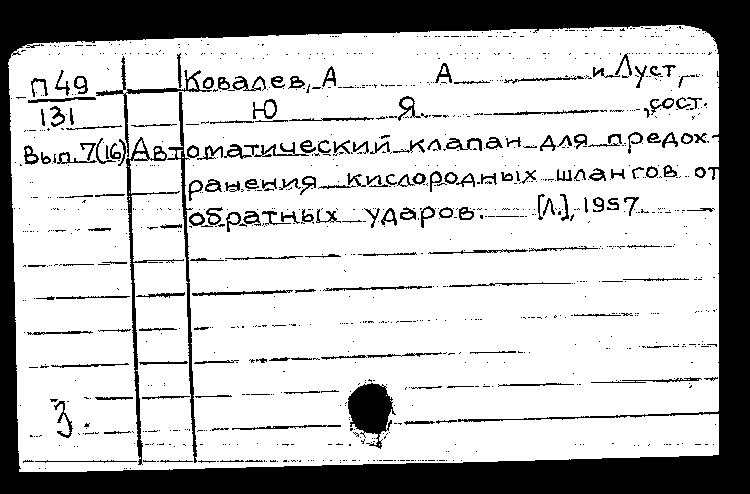 П49 Ковалев, А А и Луст,
131 Ю Я ,сост.
Вып.7(16) Автоматический клапан для предох-
ранения кислородных шлангов от
обратных ударов. [Л.], 1957
3.